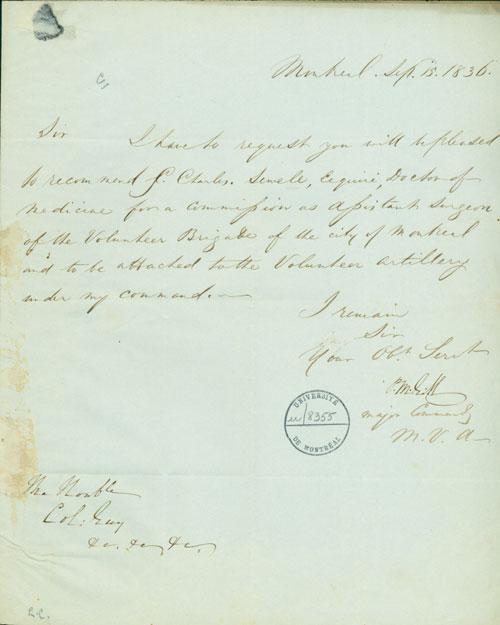 Montreal. Sept. 15. 1836.
Sir I have to request you will be pleased
to recommend S. Charles. Sewele, Esquire, Doctor of
medicine for a commission as Assistant Surgeon
of the Volunteer Brigade of the city of Montreal
and to be attached to the Volunteer Artillery
under my command.—
I remain
Sir
Your Obt. Servt
P. McGill
major Commandg
M. V. A
UNIVERSITÉ
u/8355
DE MONTRÉAL
The Honble
Col: Guy
&c. &c. &c.
R.C.